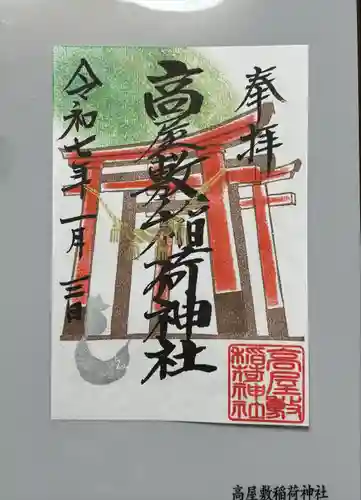 奉拝
高屋敷稲荷神社
令和七年一月三日
高屋敷
稲荷神社
高屋敷稲荷神社